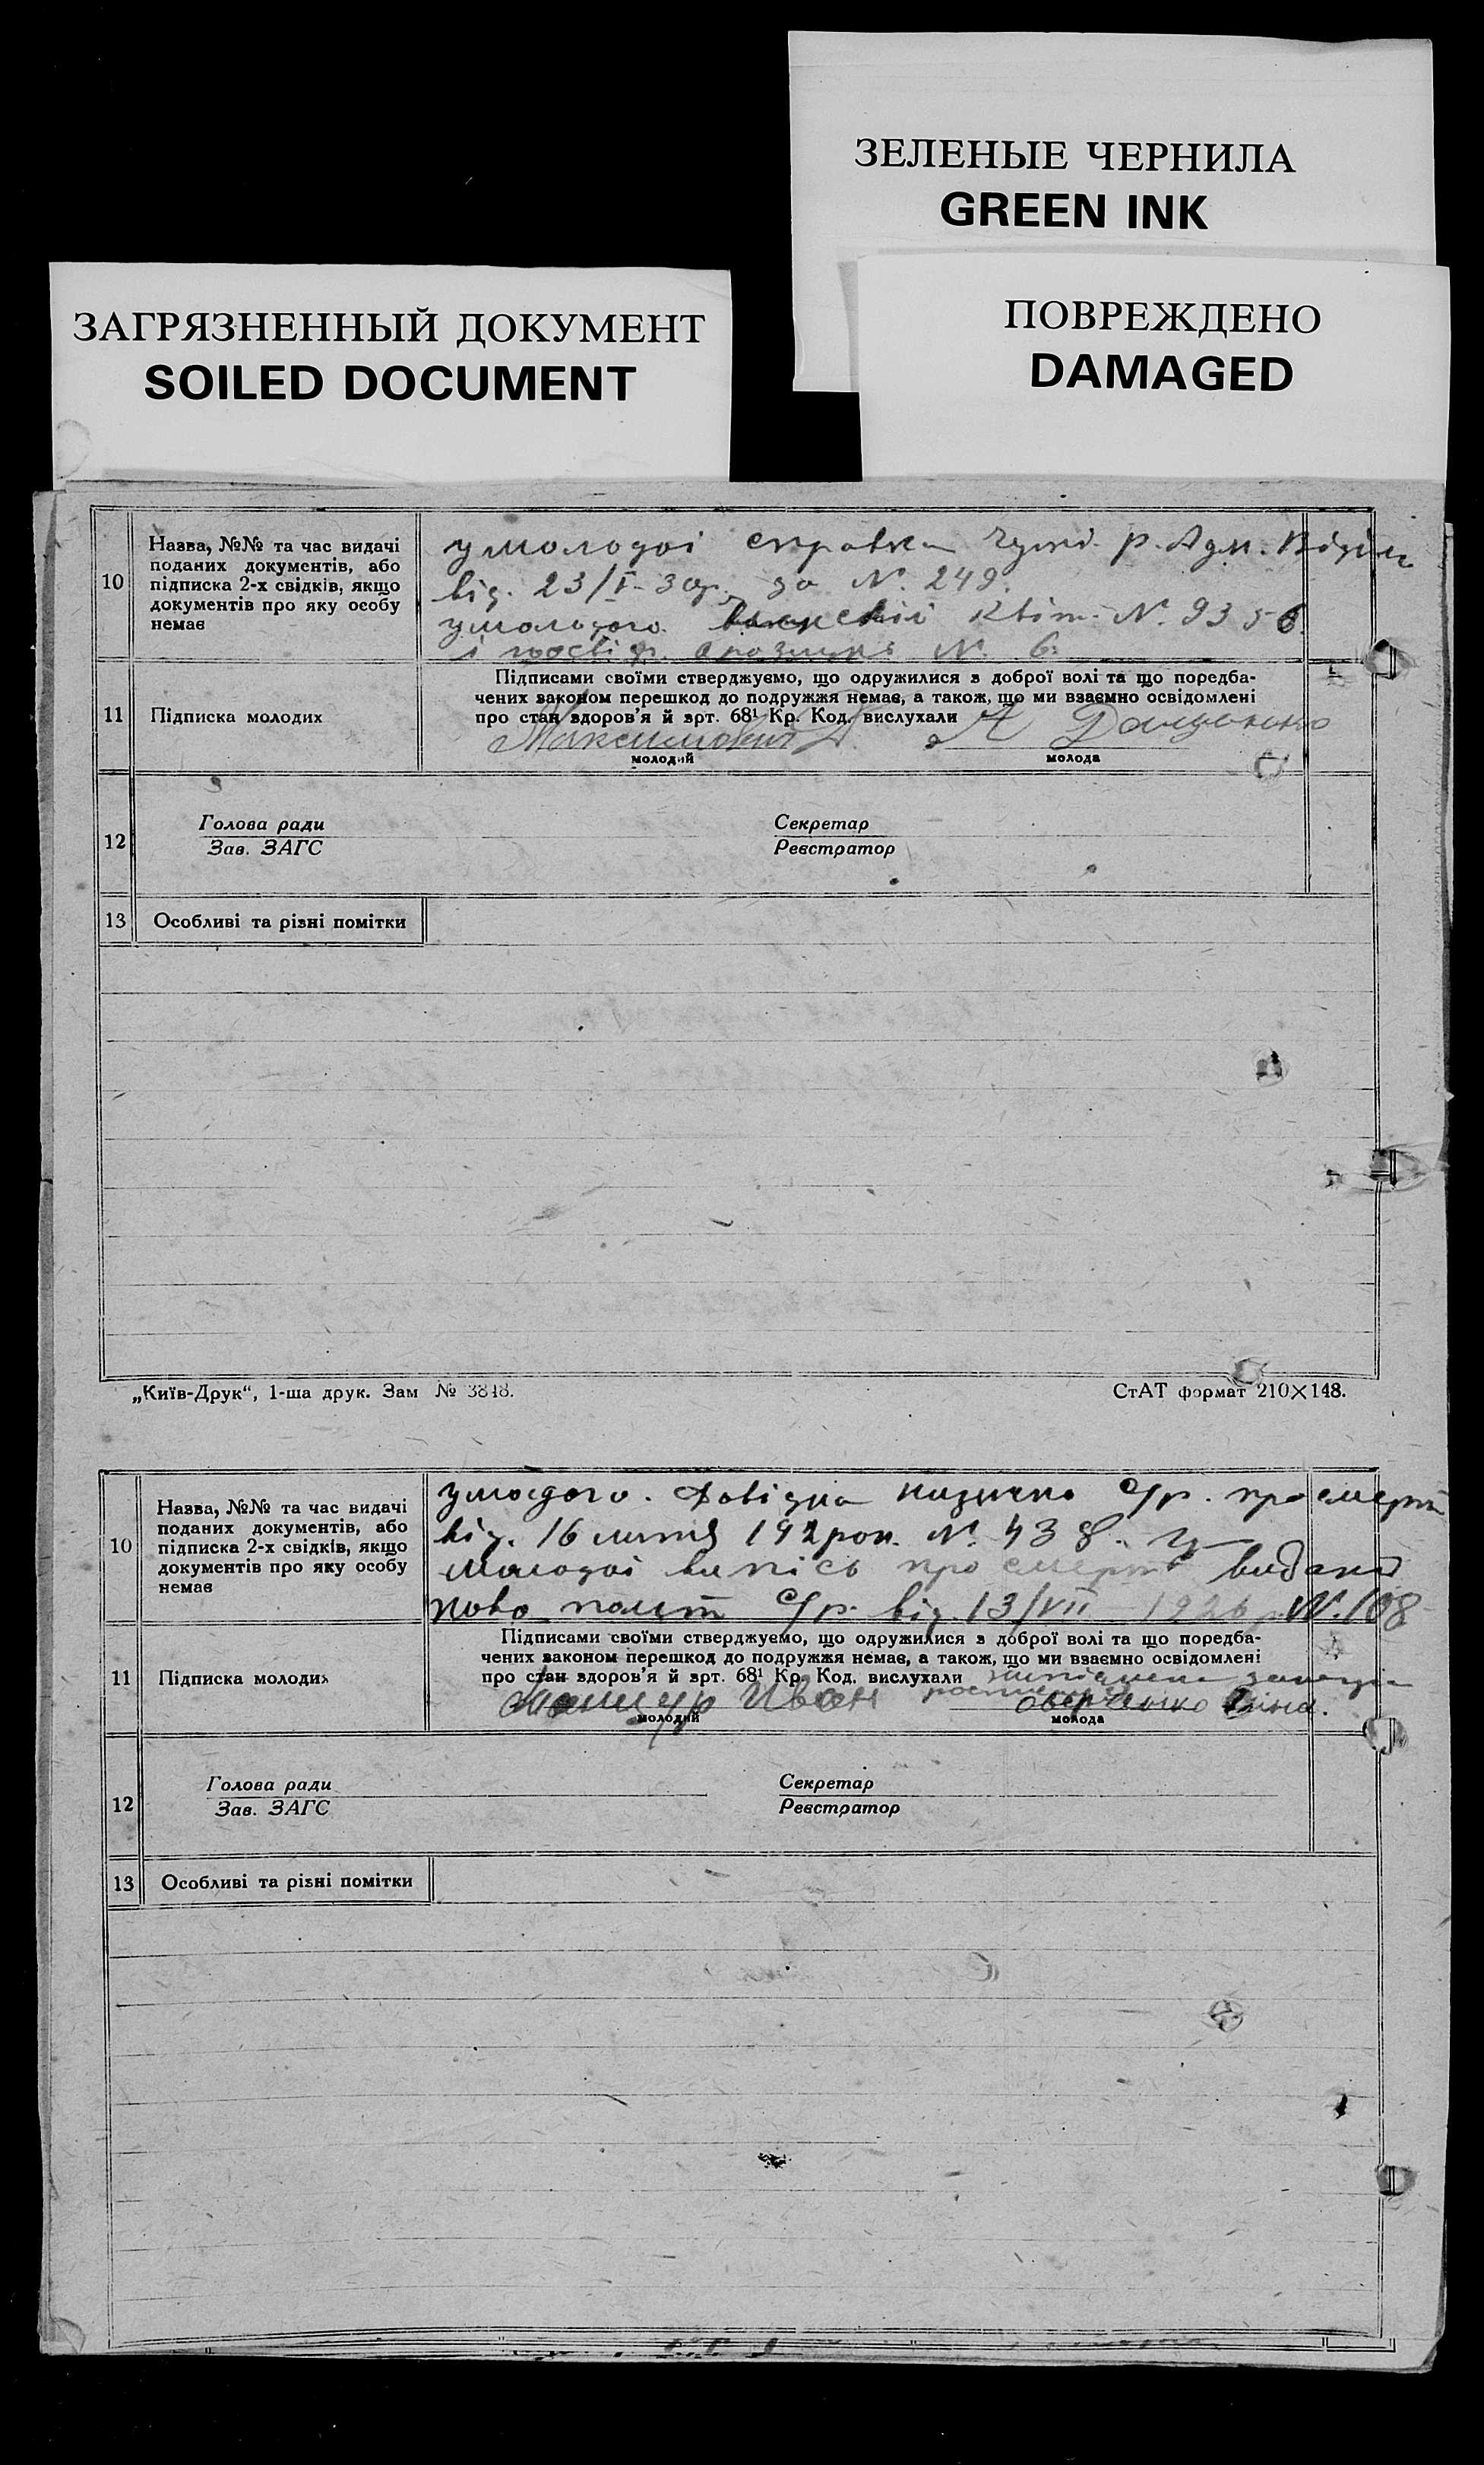 ЗЕЛЕНЫЕ ЧЕРНИЛА
GREEN INK
ЗАГРЯЗНЕННЫЙ ДОКУМЕНТ
SOILED DOCUMENT
ПОВРЕЖДЕНО
DAMAGED
10
Назва, №№ та час видачі
поданих документів, або
підписка 2-х свідків, якщо
документів про яку особу
немає
у молодої справка р. Адм. Відділ
від. 23/I-30р. за №. 249.
у молодого Квіт. №. 9356.
і №. 6.
11
Підписка молодих
Підписами своїми стверджуємо, що одружилися з доброї волі та що поредба-
чених законом перешкод до подружжя немає, а також, що ми взаємно освідомлені
про стан здоров'я й врт. 68¹ Кр. Код. вислухали
Максимович
молодий
молода
12
Голова ради
Зав. ЗАГС
Секретар
Реєстратор
13
Особливі та різні помітки
„Київ-Друк“, 1-ша друк. Зам № 3848.
СтАТ формат 210×148.
10
Назва, №№ та час видачі
поданих документів, або
підписка 2-х свідків, якщо
документів про яку особу
немає
у модого. Довідка с/р. про смерть
від. 16 192 рок. №. 438. у
молодої випісь про смерть видана
ново с/р. від. 13/VII 1926 р. №. 108
11
Підписка молодих
Підписами своїми стверджуємо, що одружилися з доброї волі та що поредба-
чених законом перешкод до подружжя немає, а також, що ми взаємно освідомлені
про стан здоров'я й врт. 68¹ Кр. Код. вислухали
Иван
молодий
молода
12
Голова ради
Зав. ЗАГС
Секретар
Реєстратор
13
Особливі та різні помітки